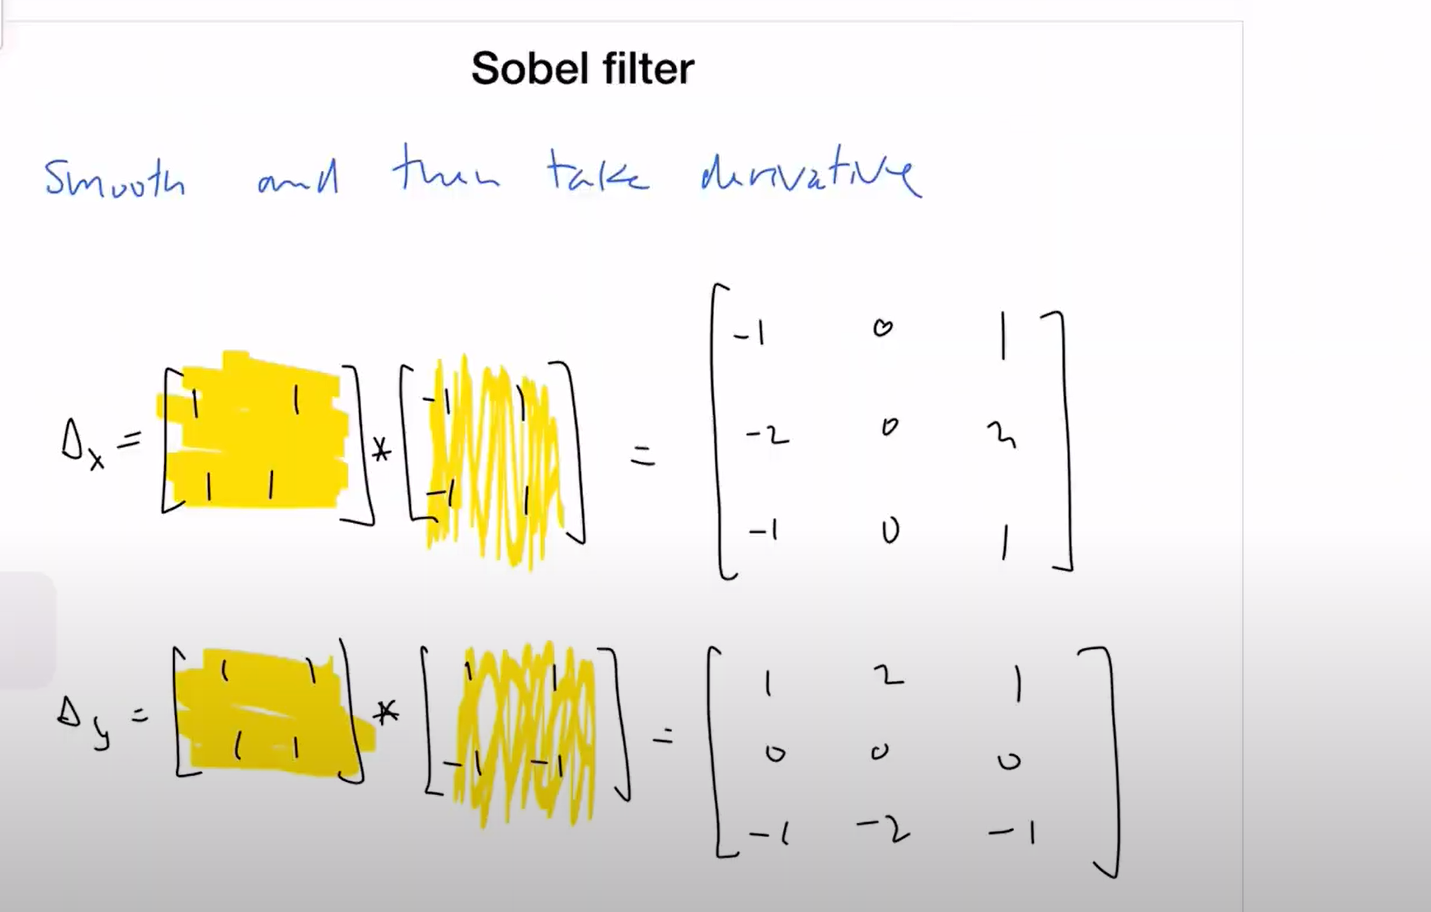 Sobel filter
smooth and then take derivative
Δx = [1 1; 1 1] * [-1 1; -1 1] = [-1 0 1; -2 0 2; -1 0 1]
Δy = [1 1; 1 1] * [1 1; -1 -1] = [1 2 1; 0 0 0; -1 -2 -1]